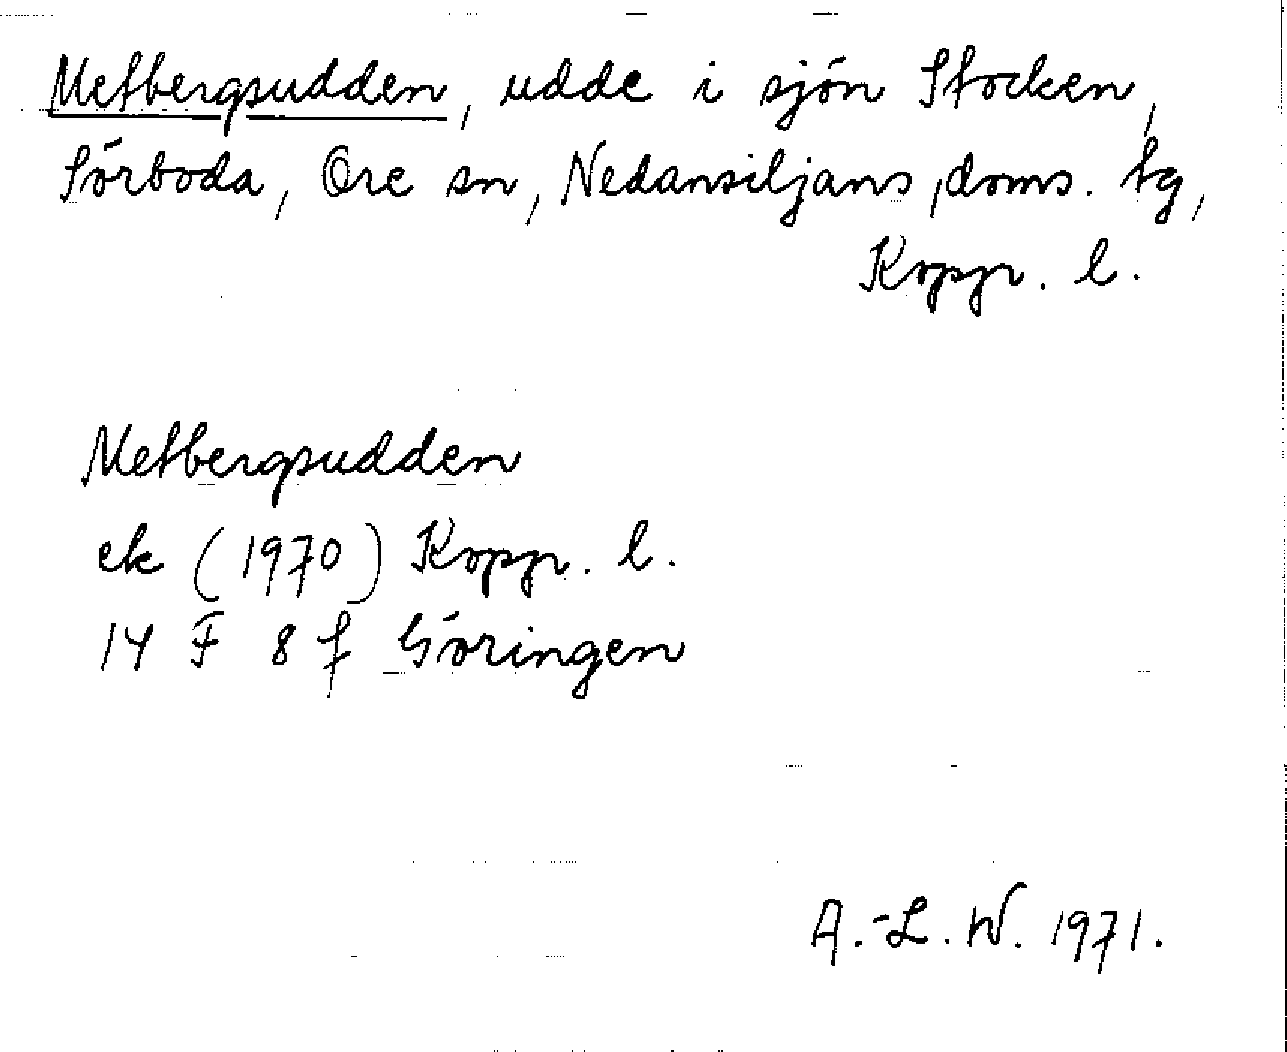 Metbergsudden, udde i sjön Stocken,
Sörboda, Ore sn, Nedansiljans doms. tg,
Koppr. l.
Metbergsudden
ek (1970) Koppr. l.
14 F 8 f Göringen
A.-L. W. 1971.